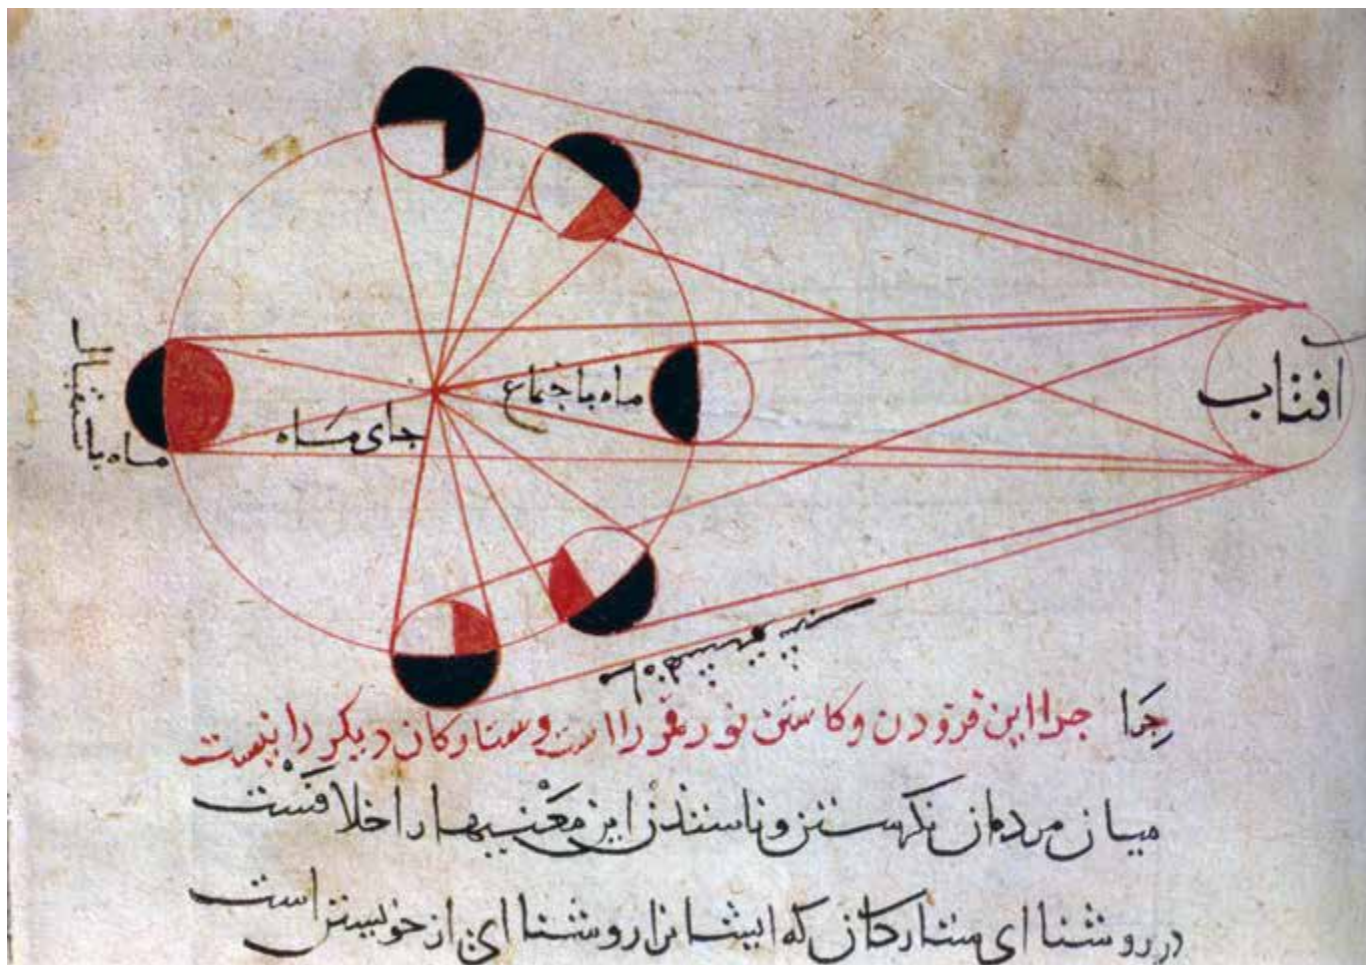 افتاب
ماه باجتماع
جای ماه
ماه باستقبال
جرا جرا این فزودن وکاستن نور قمر را است و ستارکان دیکر را نیست
میان مردمان نکرستن این معنیها را خلافست
در روشنا ای ستارکان که ایشانرا روشنا ای از خویشتن است